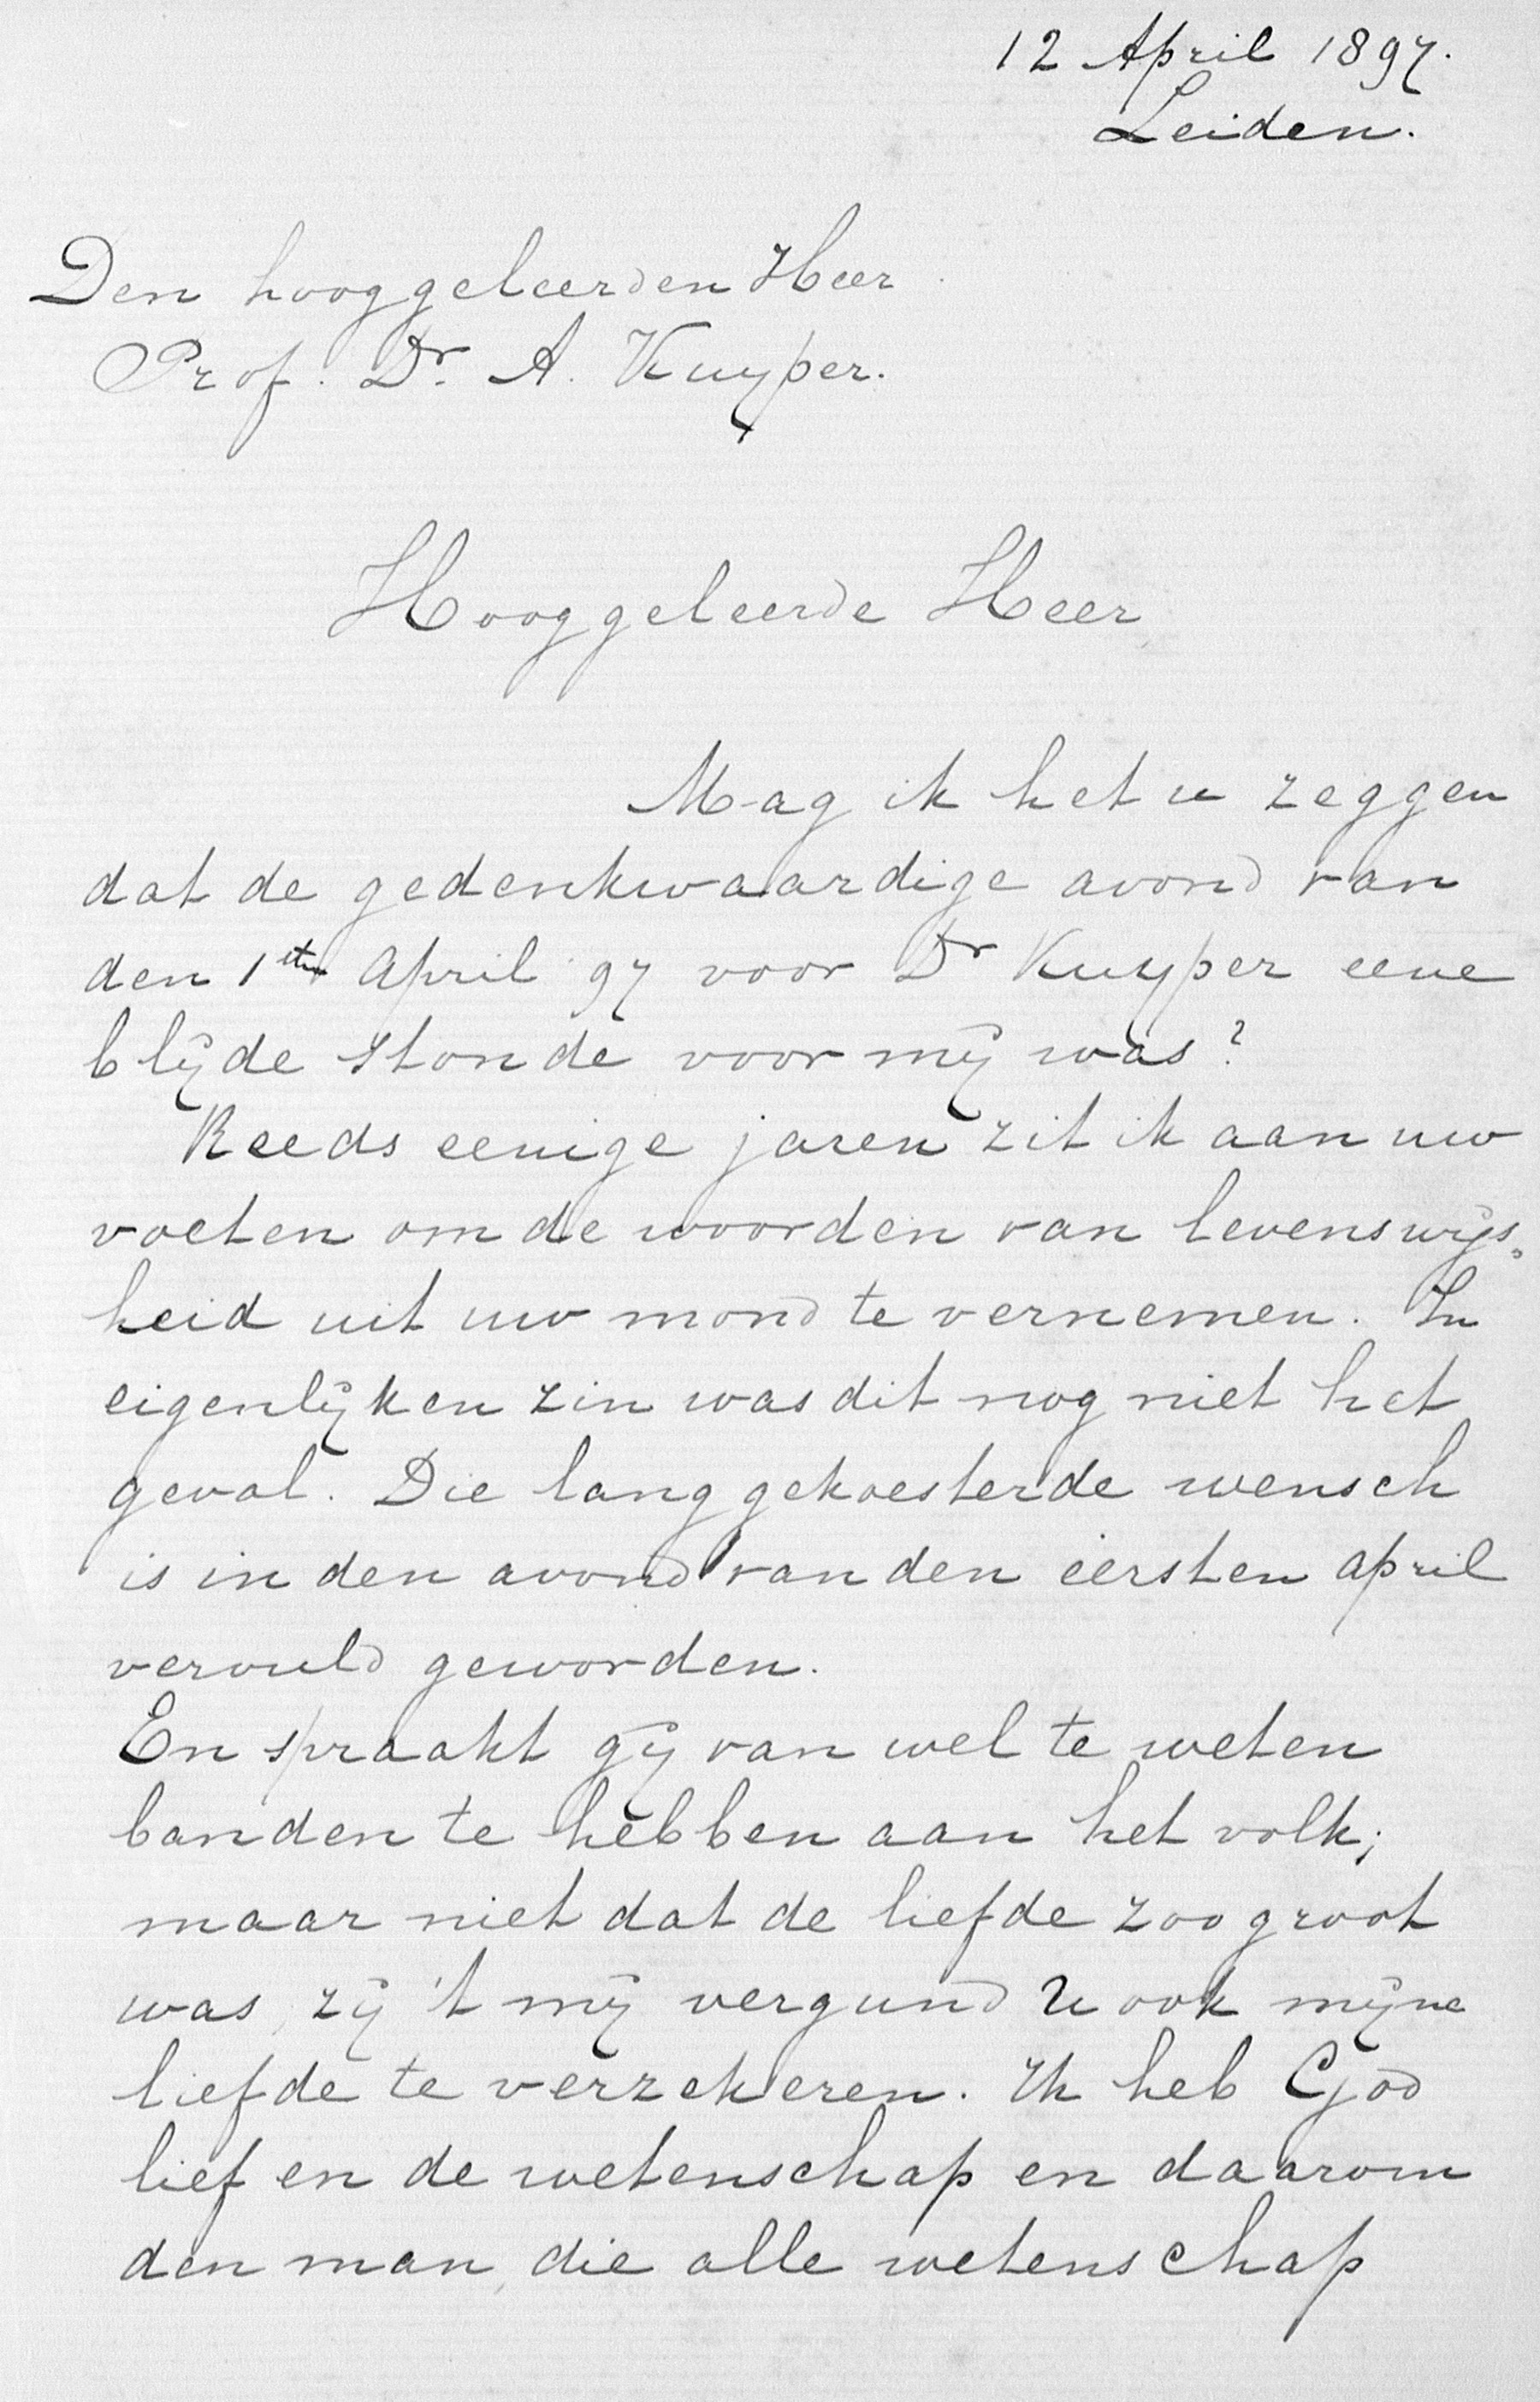 12 April 1897.
Leiden.
Den hooggeleerden Heer
Prof. Dr. A. Kuyper.
Hooggeleerde Heer
Mag ik het u zeggen
dat de gedenkwaardige avond van
den 1sten April 97 voor Dr Kuyper eene
blijde stonde voor mij was?
Reeds eenige jaren zit ik aan uw
voeten om de woorden van levenswijs=
heid uit uw mond te vernemen. In
eigenlijken zin was dit nog niet het
geval. Die lang gekoesterde wensch
is in den avond van den eersten april
vervuld geworden.
En spraakt gij van wel te weten
banden te hebben aan het volk;
maar niet dat de liefde zoo groot
was, zij 't mij vergund U ook mijne
liefde te verzekeren. Ik heb God
lief en de wetenschap en daarom
den man, die alle wetenschap